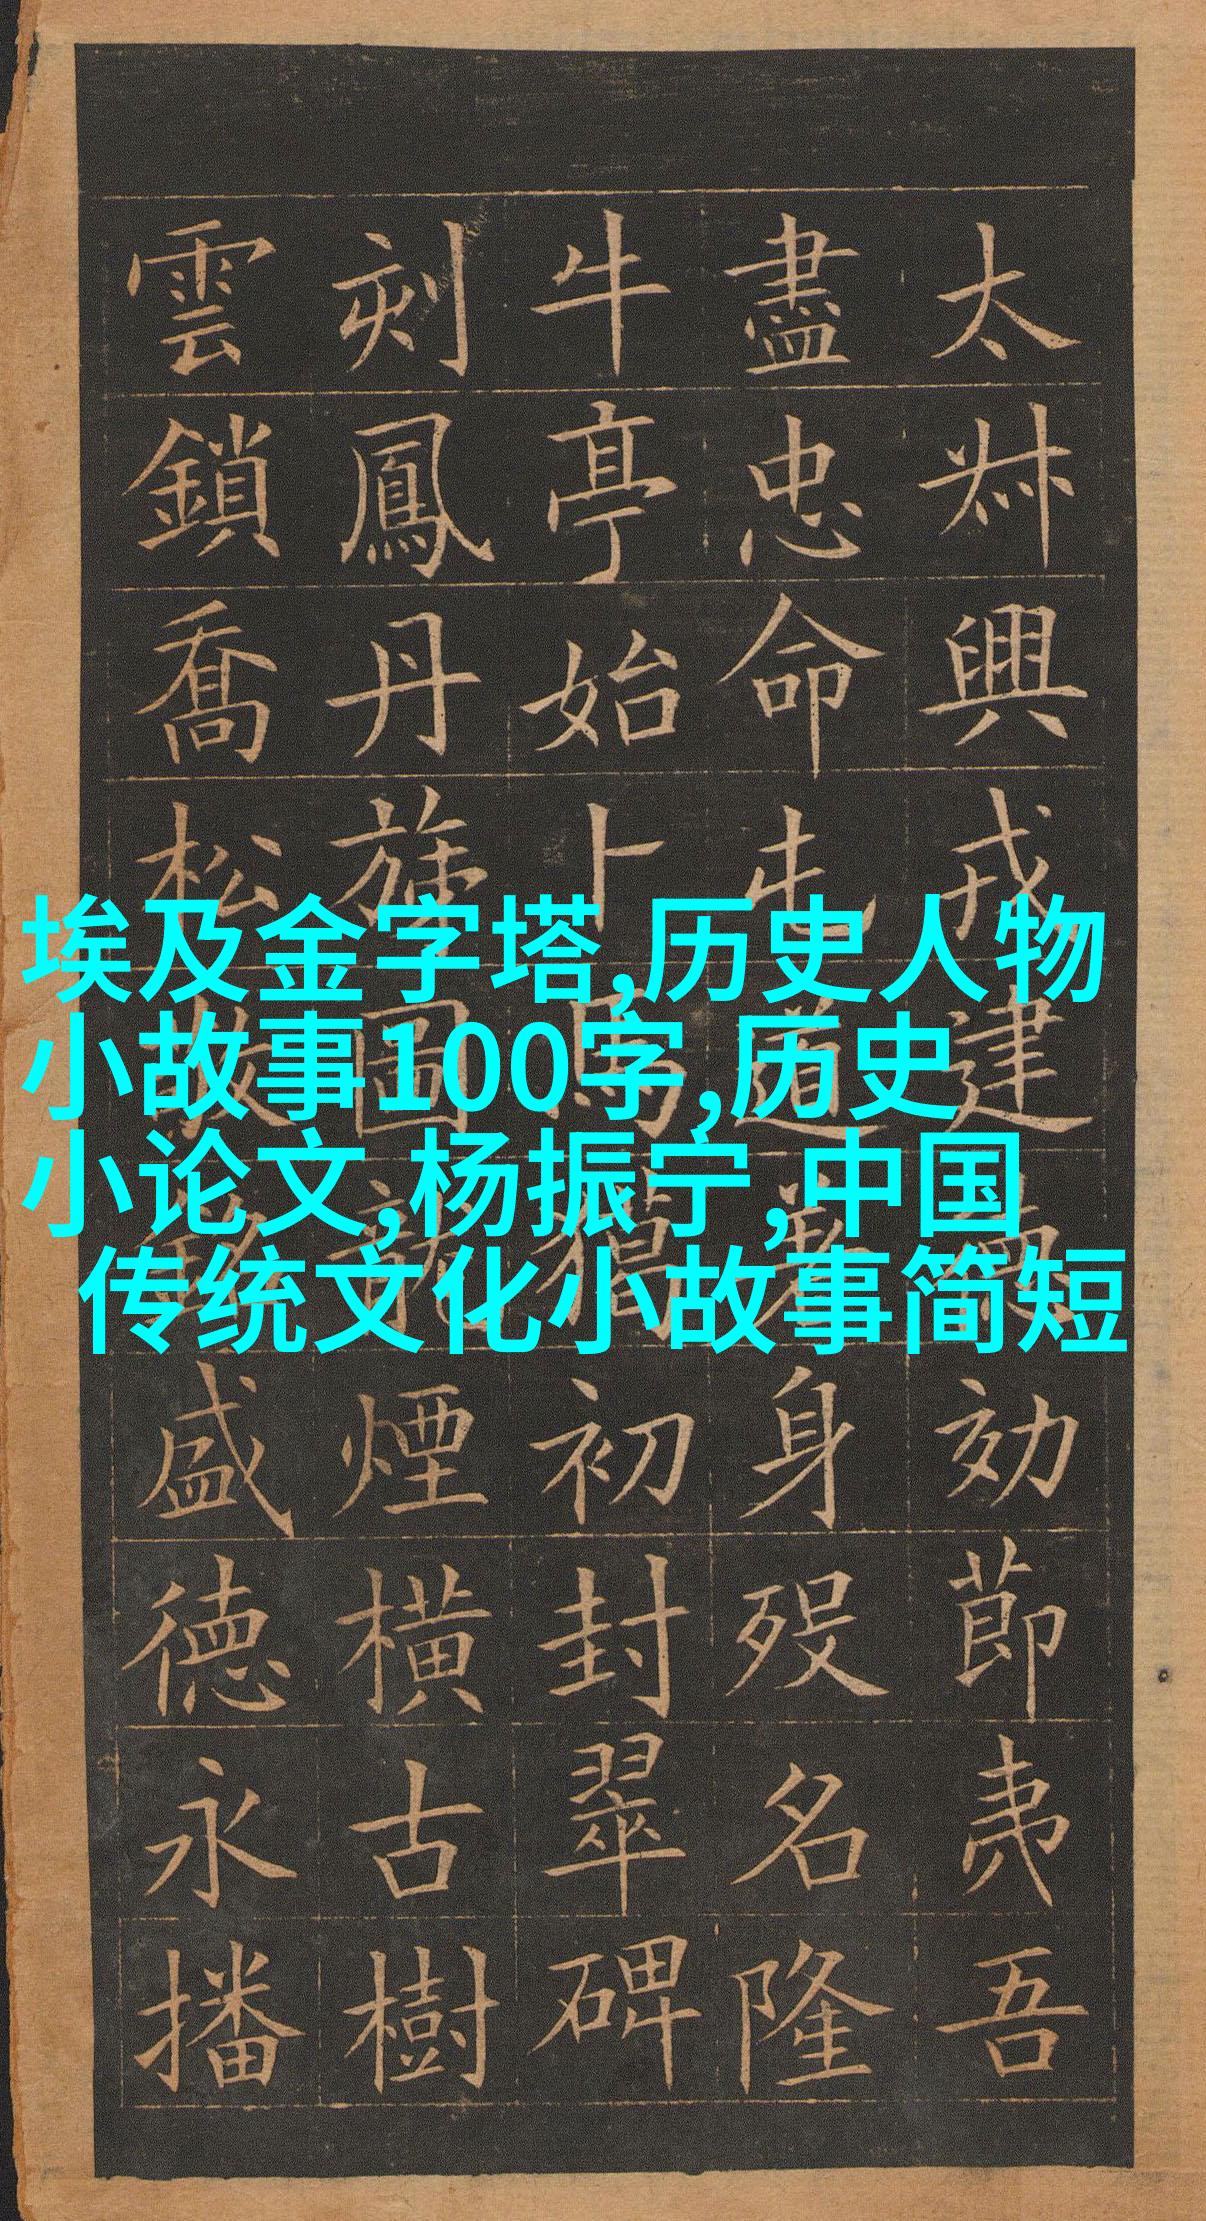 埃及金字塔,历史人物
小故事100字,历史
小论文,杨振宁,中国
传统文化小故事简短
太興戎建効節夷吾
盡忠命屯道身歿名隆
牛亭始卜馬初封翠碑
刻鳳丹旌圖煙橫古樹
雲鎖喬松盛德永播